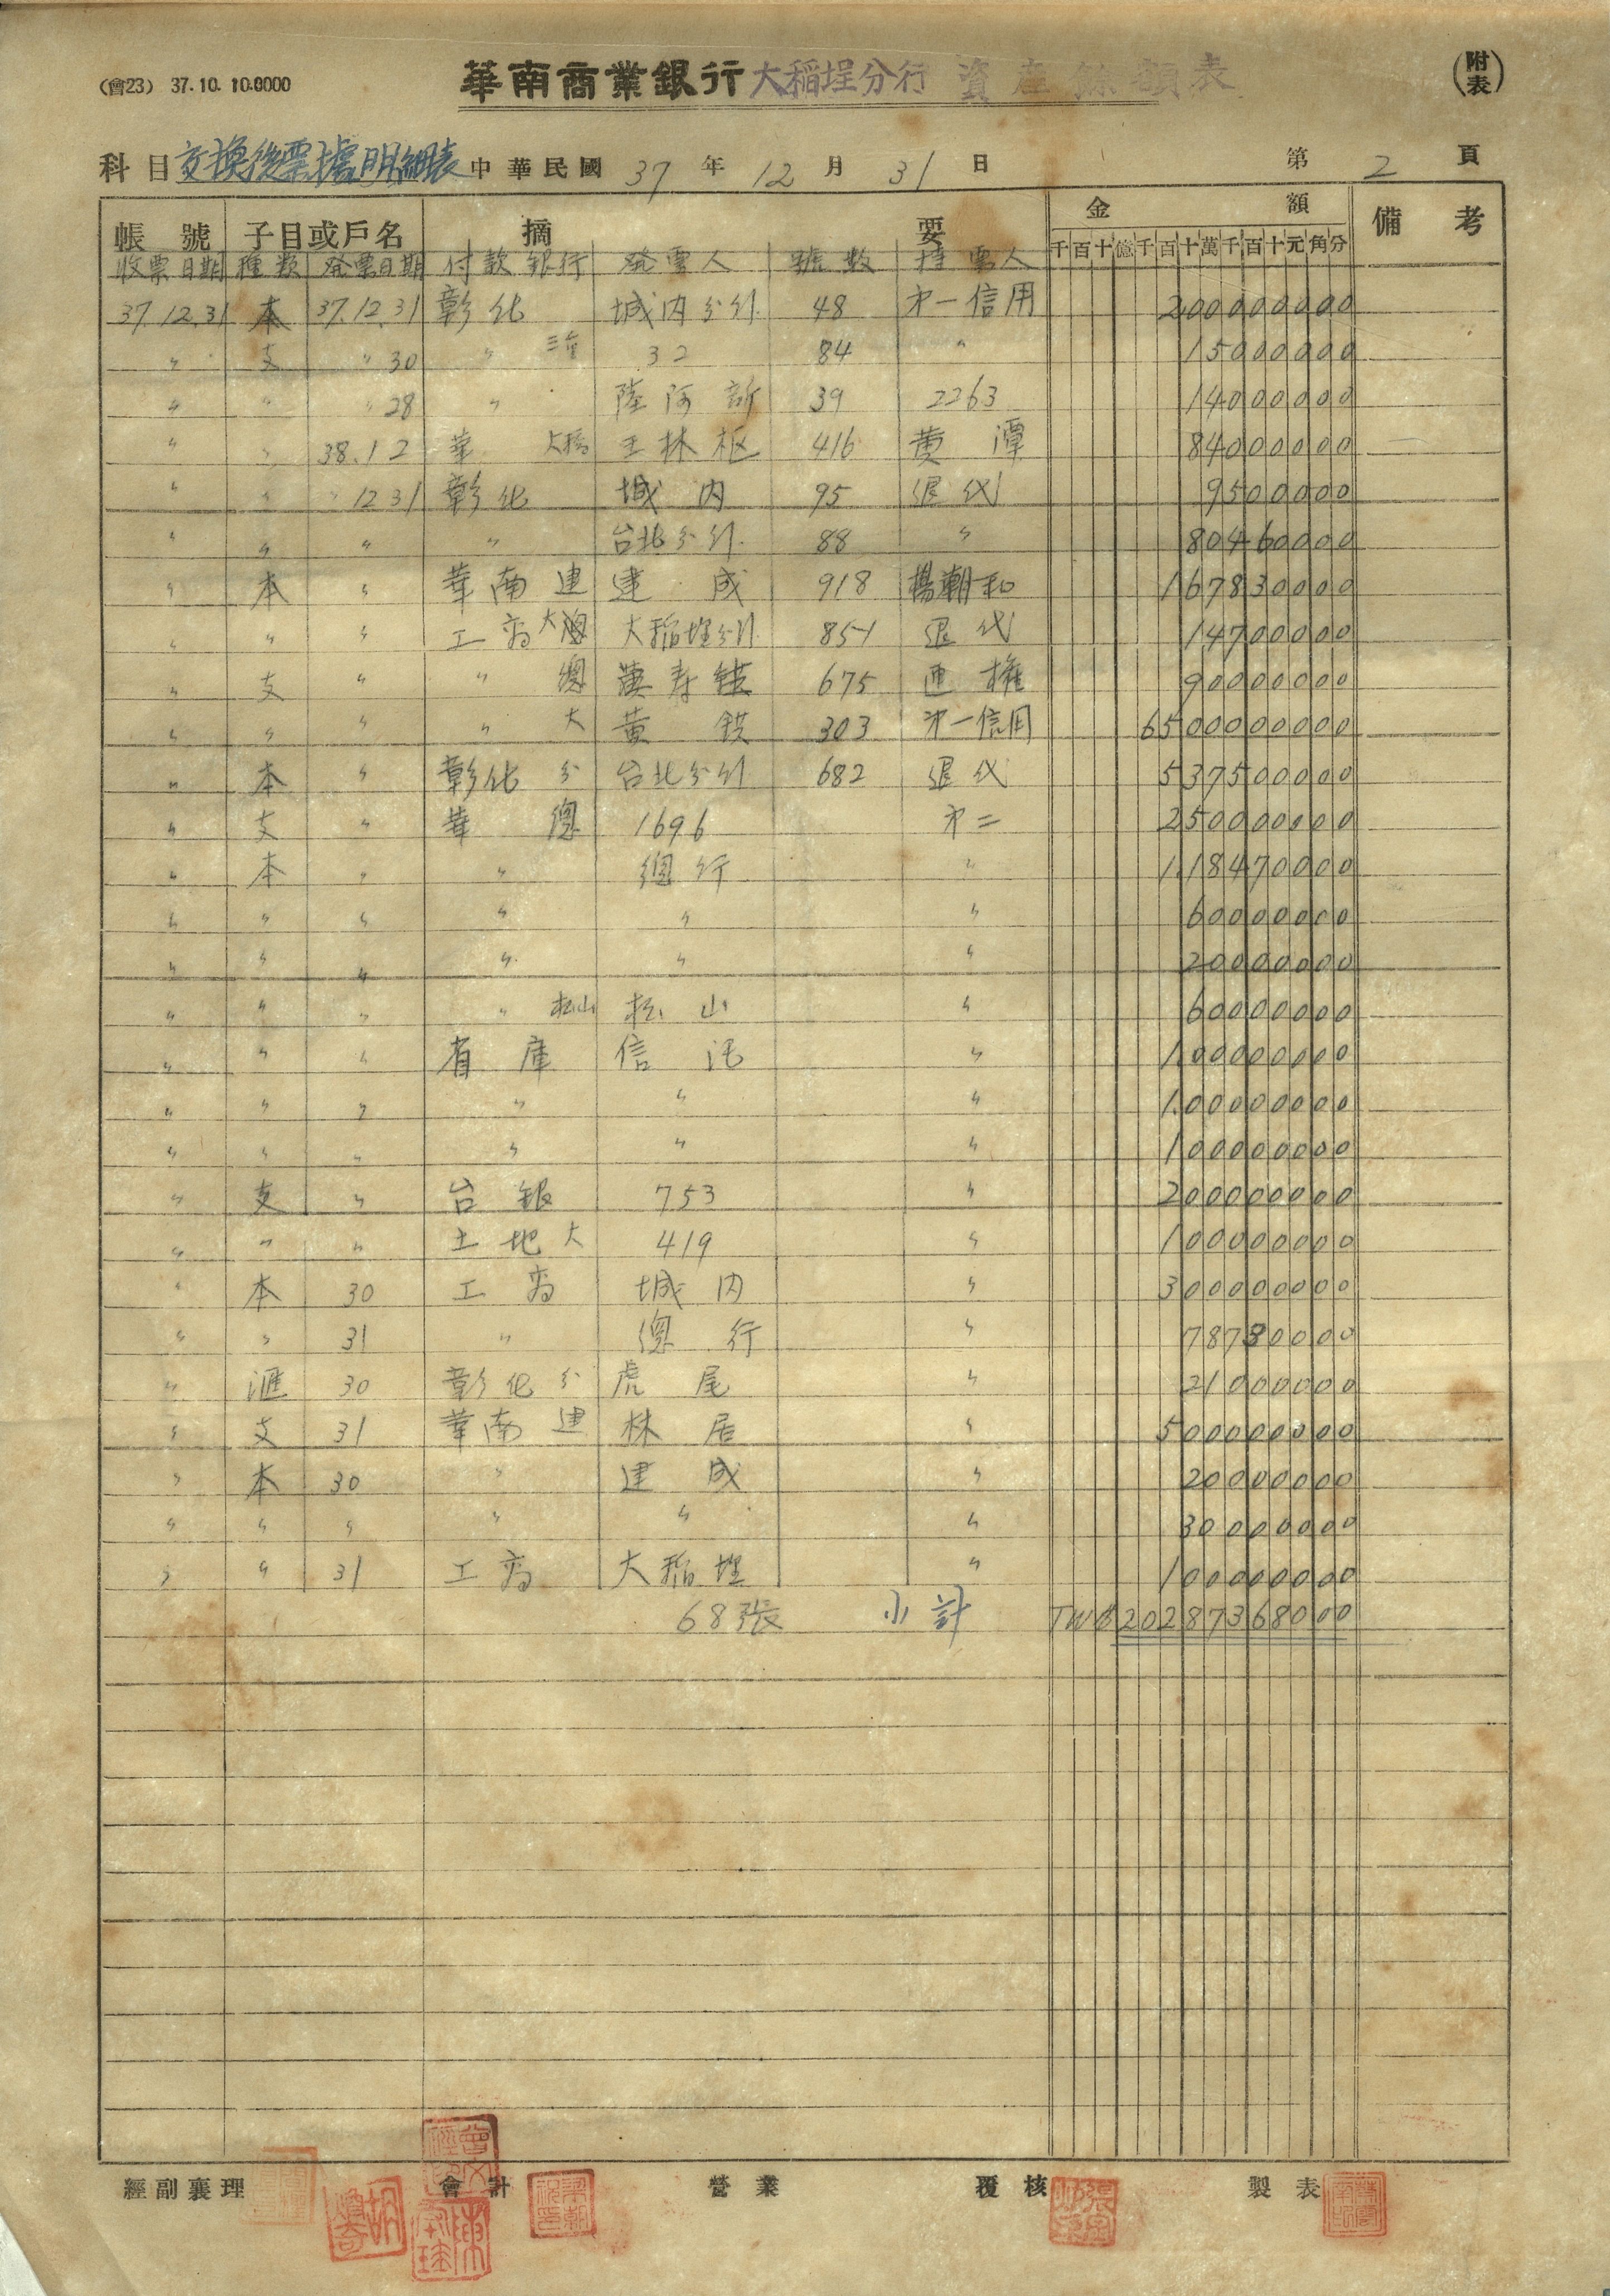 (會23) 37.10.10.8000
華南商業銀行 大稻埕分行 資產餘額表
(附表)
科目 交換後票據明細表 中華民國 37 年 12 月 31 日 第 2 頁
帳號 子目或戶名 摘要 金額 備考
收票日期 種類 発票日期 付款銀行 発票人 號數 持票人 千百十億千百十萬千百十元角分
37.12.31 本 37.12.31 彰化 城内分行 48 才一信用 200000000
〃 支 〃30 〃 32 84 〃 15000000
〃 〃 〃28 〃 陸阿新 39 2263 14000000
〃 〃 38.1 2 華 大稻 王林枢 416 黄潭 84000000
〃 〃 〃12 31 彰化 城内 95 退代 9500000
〃 〃 〃 〃 台北分行 88 〃 80460000
〃 本 〃 華南建 建成 918 楊朝和 167830000
〃 〃 〃 工商大 大稻埕分行 851 退代 14700000
〃 支 〃 〃 總 675 連權 90000000
〃 〃 〃 〃 大 黄鉄 303 才一信用 6500000000
〃 本 〃 彰化分 台北分行 682 退代 537500000
〃 支 〃 華總 1696 才二 250000000
〃 本 〃 〃 總行 〃 118470000
〃 〃 〃 〃 〃 〃 60000000
〃 〃 〃 〃 〃 〃 20000000
〃 〃 〃 〃 松山 松山 〃 60000000
〃 〃 〃 省庫 信託 〃 100000000
〃 〃 〃 〃 〃 〃 100000000
〃 〃 〃 〃 〃 〃 100000000
〃 支 〃 台銀 753 〃 200000000
〃 〃 〃 土地大 419 〃 100000000
〃 本 30 工商 城内 〃 300000000
〃 〃 31 〃 總行 〃 78780000
〃 滙 30 彰化分 虎尾 〃 21000000
〃 支 31 華南建 林居 〃 500000000
〃 本 30 〃 建成 〃 20000000
〃 〃 〃 〃 〃 〃 30000000
〃 〃 31 工商 大稻埕 〃 100000000
68張 小計 TW$20287368000
經副襄理 會計 營業 覆核 製表